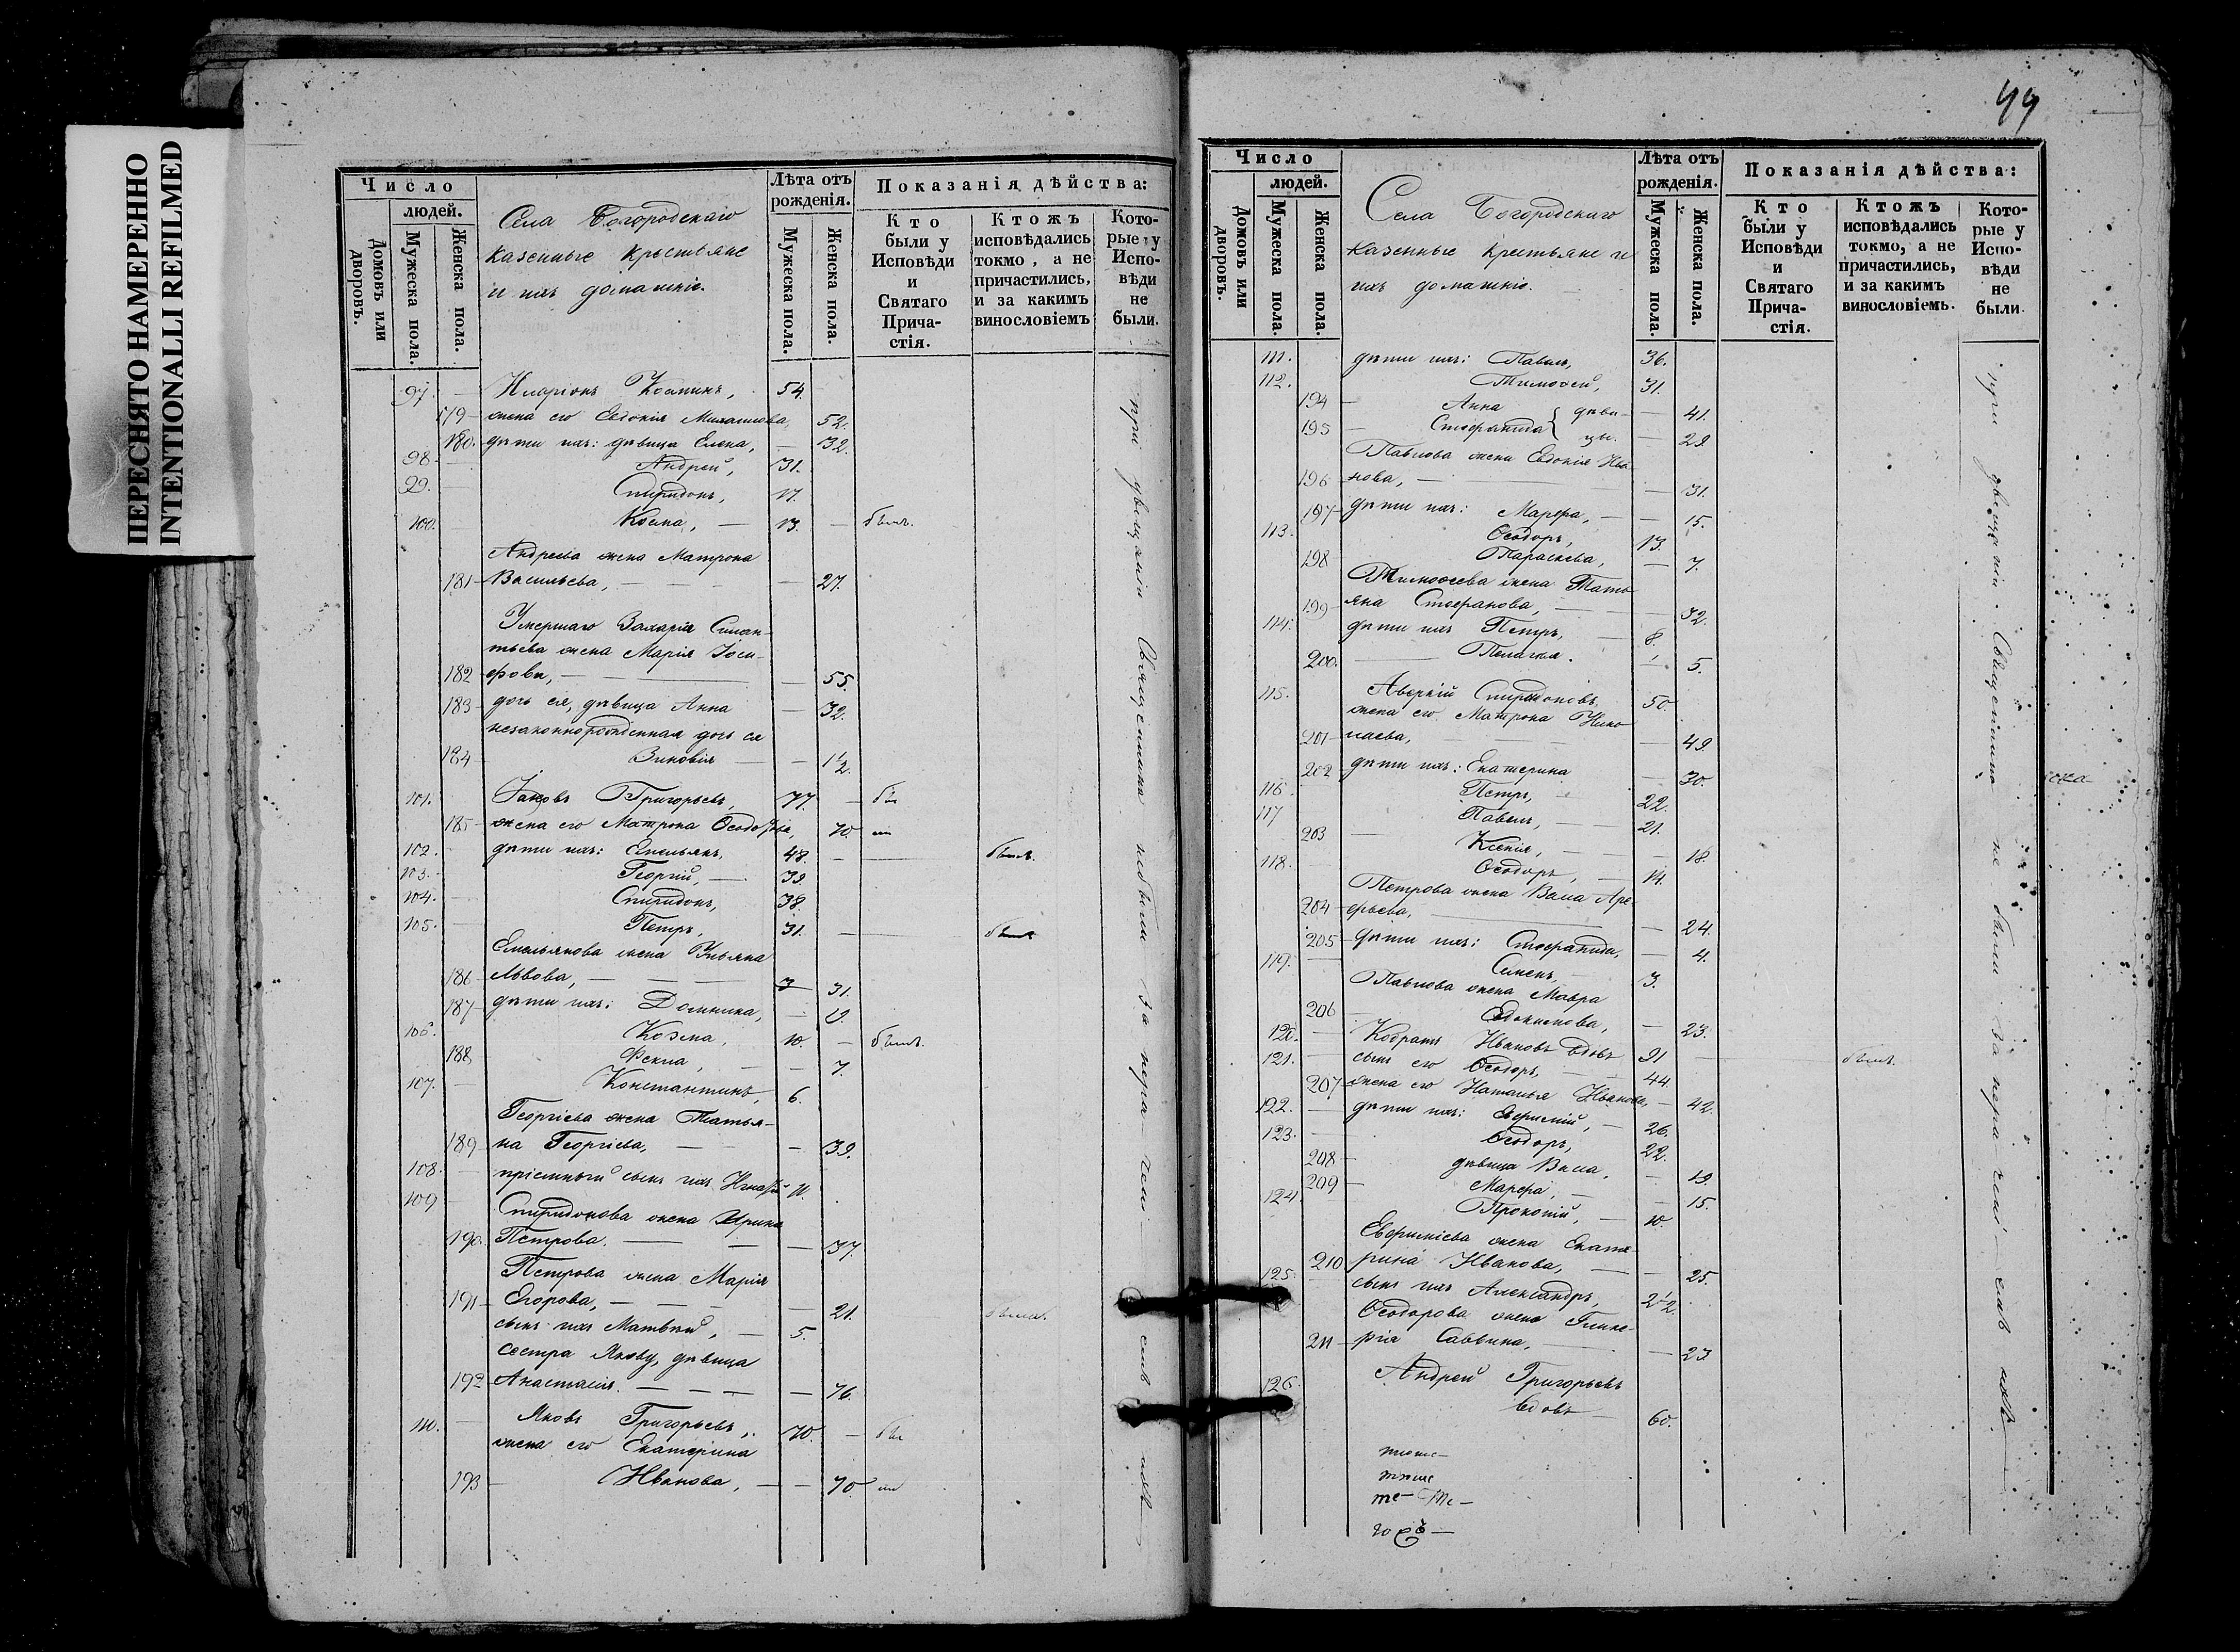 ПЕРЕСНЯТО НАМЕРЕННО
INTENTIONALLI REFILMED
Число
людей.
Домовъ или дворовъ.
Мужеска пола.
Женска пола.
Села Богородскаго
казенные крестьяне
и ихъ домашніе.
Лѣта отъ рожденія.
Мужеска пола.
Женска пола.
Показанія дѣйства:
Кто были у Исповѣди и Святаго Прича- стія.
Ктожъ исповѣдались токмо, а не причастились, и за какимъ винословіемъ
Кото- рые у Испо- вѣди не были.
97. — Иларіонъ Козминъ, 54.
179 — жена его Евдокія Михаилова, 52.
180. дѣти ихъ: дѣвица Елена, — 32.
98. — Андрей, 31.
99. Спиридонъ, 17.
100. Косма, — 13. — былъ.
Андреева жена Матрона
181 — Васильева, — — — 27.
Умершаго Захарія Силан-
тьева жена Марія Іоси-
182 фова, — — 55.
183 — дочь ея, дѣвица Анна — 32.
незаконнорожденная дочь ея
184 — Зиновія — — 1/2.
101. Іаковъ Григорьевъ, 77. —
185 — жена его Матрона Ѳеодорова, 70.
102. дѣти ихъ: Емельянъ, 48. — былъ.
103. Георгій, — 39.
104. — Спиридонъ, 38.
105. — Петръ, 31. —
Емельянова жена Ульяна
186 — Львова, — — 31.
187 — дѣти ихъ: Домника, — 9.
106. Козма, 10. — былъ.
188. Фекла, — — 7.
107. — Константинъ, 6.
Георгіева жена Татья-
189 — на Георгіева, — — — 39.
108. — пріемный сынъ ихъ Игнатій 11.
109 — Спиридонова жена Ирина
190. Петрова. — — — 37.
Петрова жена Марія
191 — Егорова, — — — 21.
сынъ ихъ Матвѣй, — 5.
сестра Якову, дѣвица
192 — Анастасія. — — — — 76.
110. — Яковъ Григорьевъ, 70. —
жена его Екатерина
193 — Иванова, — — 70
при увѣщаніи Священника не были за нера чені емъ ихъ
99
Число
людей.
Домовъ или дворовъ.
Мужеска пола.
Женска пола.
Села Богородскаго
казенные крестьяне и
ихъ домашніе.
Лѣта отъ рожденія.
Мужеска пола.
Женска пола.
Показанія дѣйства:
Кто были у Исповѣди и Святаго Прича- стія.
Ктожъ исповѣдались токмо, а не причастились, и за какимъ винословіемъ.
Кото- рые у Испо- вѣди не были.
111. дѣти ихъ: Павелъ, 36.
112. Тимоѳей, 31.
194 — Анна } дѣви- — 41.
195 — Стефанида } цы. — 29.
Павлова жена Евдокія Ива-
196 нова, — — 31.
197 — дѣти ихъ: Марфа, — — 15.
113. Ѳеодоръ, 13.
198 Параскева, — 7.
Тимоѳеева жена Тать-
199 — яна Стефанова, — 32.
114. дѣти ихъ Петръ, — 8.
200. — Пелагея. — 5.
115. Аверкій Спиридоновъ, 50.
жена его Матрона Нико-
201 — лаева, — 49.
202 дѣти ихъ: Екатерина — 30.
116. Петръ, — 22.
117 Павелъ, — 21.
203 — Ксенія, — — 18.
118. — Ѳеодоръ, — 14.
Петрова жена Васса Аре-
204 — фьева, — — 24.
205 — дѣти ихъ: Стефанида, — 4.
119. — Симеонъ, — 3.
Павлова жена Мавра
206 — Евдокимова, — 23.
120. — Кодратъ Ивановъ вдовъ 91 — былъ.
121. — сынъ его Ѳеодоръ, — 44.
207 — жена его Наталья Иванова, — 42.
122. — дѣти ихъ: Евфимій, — 26.
123. — Ѳеодоръ, 22.
208 — дѣвица Васса, — 19.
209 — Марфа, — — 15.
124. Прокопій, — 10.
Евфиміева жена Екате-
210 рина Иванова, — — 25.
125. — сынъ ихъ Александръ, 2 1/2.
Ѳеодорова жена Глике-
211 — рія Саввина, — — 23
126. — Андрей Григорьевъ
вдовъ — 60.
при увѣщаніи Священника не были за нера чені емъ ихъ